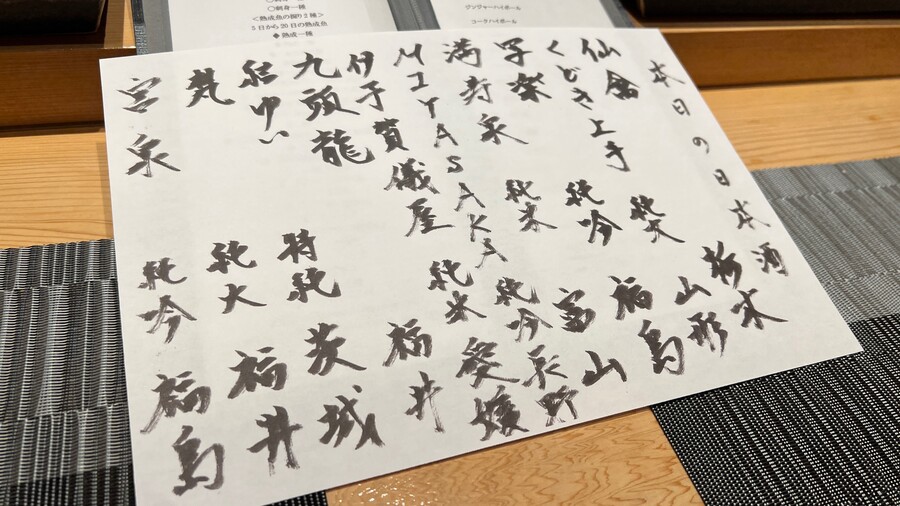 ◯刺身一種
＜熟成魚の握り2種＞
5日から20日の熟成魚
◆ 熟成一種
ジンジャーハイボール
コークハイボール
本日の日本酒
仙禽 栃木
くどき上手 純大 山形
写楽 純吟 福島
満寿泉 純米 富山
MIYASAKA 純吟 長野
伊予賀儀屋 純米 愛媛
九頭龍 福井
結ゆい 特純 茨城
梵 純大 福井
宮泉 純吟 福島